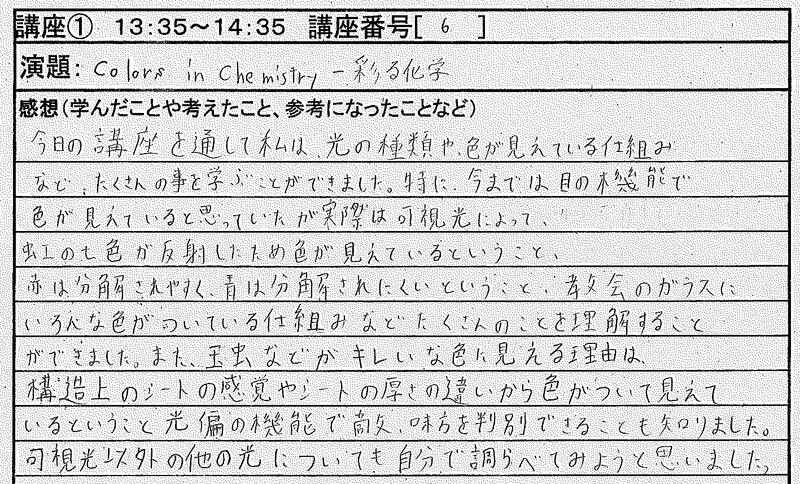 講座① 13:35～14:35 講座番号[ 6 ]
演題: Colors in Chemistry －彩る化学
感想(学んだことや考えたこと、参考になったことなど)
今日の講座を通して私は、光の種類や、色が見えている仕組み
など、たくさんの事を学ぶことができました。特に、今までは目の機能で
色が見えていると思っていたが実際は可視光によって、
虹の七色が反射したため色が見えているということ、
赤は分解されやすく、青は分解されにくいということ、教会のガラスに
いろんな色がついている仕組みなどたくさんのことを理解すること
ができました。また、玉虫などがキレいな色に見える理由は、
構造上のシートの感覚やシートの厚さの違いから色がついて見えて
いるということ光偏の機能で敵、味方を判別できることも知りました。
可視光以外の他の光についても自分で調らべてみようと思いました。